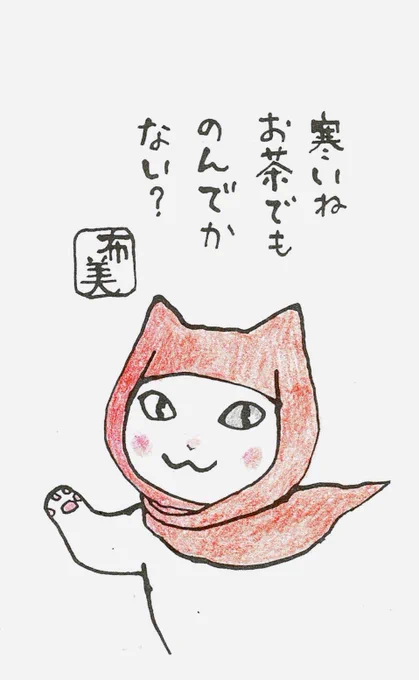 寒いね
お茶でも
のんでか
ない?
布美